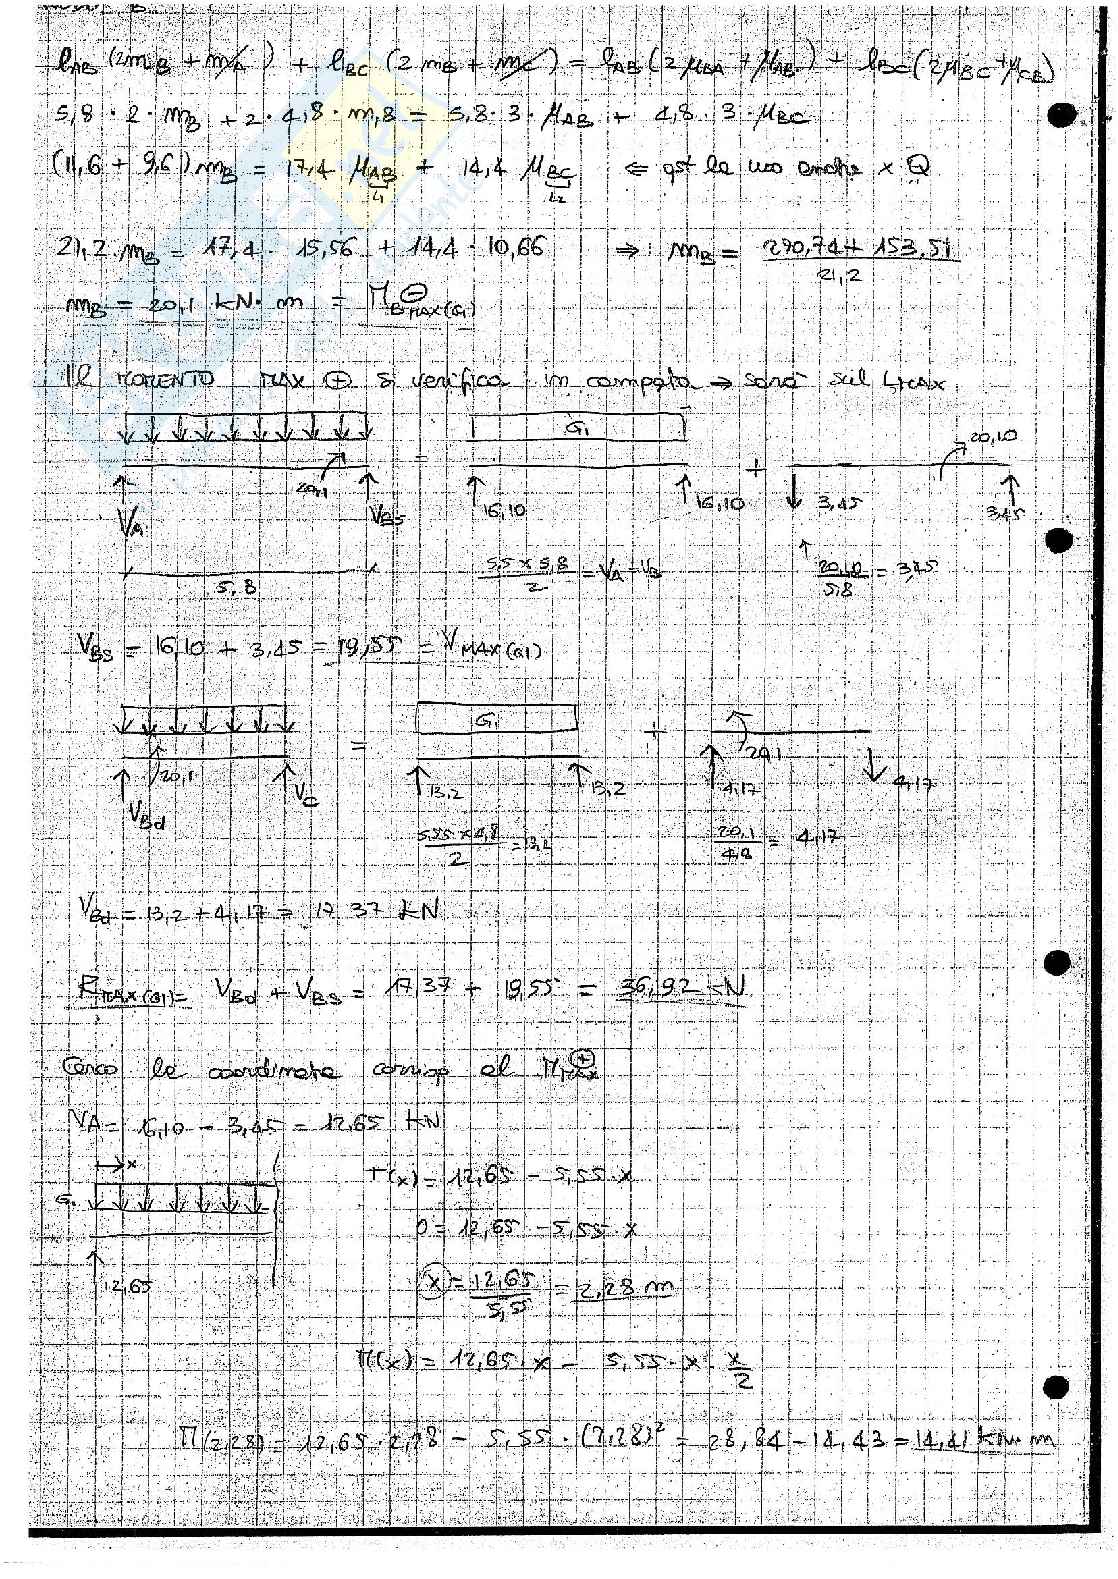 l_AB (2 m_B + m_A) + l_BC (2 m_B + m_C) = l_AB (2 μ_BA + μ_AB) + l_BC (2 μ_BC + μ_CB)
5,8 · 2 · m_B + 2 · 4,8 · m_B = 5,8 · 3 · μ_AB + 4,8 · 3 · μ_BC
(11,6 + 9,6) m_B = 17,4 μ_AB + 14,4 μ_BC ⇐ qst le uso anche x Q
L1 L2
21,2 · m_B = 17,4 · 15,56 + 14,4 · 10,66 ⇒ m_B = (270,74 + 153,51) / 21,2
m_B = 20,1 kN · m = M⊖_B MAX(G1)
Il MOMENTO MAX ⊕ si verifica in campata → sarà sul L MAX
G1 20,10
= +
20,1
V_A V_BS 16,10 16,10 3,45 3,45
5,8 (5,5 x 5,8) / 2 = V_A = V_B 20,10 / 5,8 = 3,45
V_BS = 16,10 + 3,45 = 19,55 = V_MAX(G1)
G1
= +
20,1 20,1
V_Bd V_C 13,2 13,2 4,17 4,17
(5,55 x 4,8) / 2 = 13,2 20,1 / 4,8 = 4,17
V_Bd = 13,2 + 4,17 = 17,37 kN
R_MAX(G1) = V_Bd + V_BS = 17,37 + 19,55 = 36,92 kN
Cerco le coordinate corrisp al M⊕_MAX
VA = 16,10 - 3,45 = 12,65 kN
x
T(x) = 12,65 - 5,55 · x
G1
0 = 12,65 - 5,55 · x
12,65
x = 12,65 / 5,55 = 2,28 m
M(x) = 12,65 · x - 5,55 · x · x/2
M(2,28) = 12,65 · 2,28 - 5,55 · (2,28)² = 28,84 - 14,43 = 14,41 kN · m